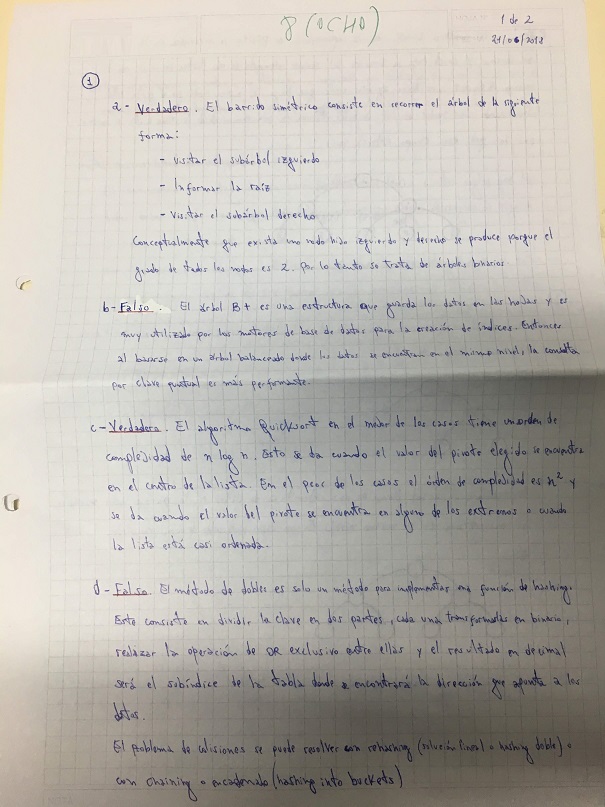 8 (OCHO)
1 de 2
21/06/2018
1
a - Verdadero. El barrido simétrico consiste en recorrer el árbol de la siguiente
forma:
- visitar el subárbol izquierdo
- Informar la raíz
- visitar el subárbol derecho
Conceptualmente que exista un nodo hijo izquierdo y derecho se produce porque el
grado de todos los nodos es 2. Por lo tanto se trata de árboles binarios.
b - Falso. El árbol B+ es una estructura que guarda los datos en las hojas y es
muy utilizado por los motores de base de datos para la creación de índices. Entonces
al basarse en un árbol balanceado donde los datos se encuentran en el mismo nivel, la consulta
por clave puntual es más performante.
c - Verdadero. El algoritmo Quicksort en el mejor de los casos tiene un orden de
complejidad de n log n. Esto se da cuando el valor del pivote elegido se encuentra
en el centro de la lista. En el peor de los casos el órden de complejidad es n² y
se da cuando el valor del pivote se encuentra en alguno de los extremos o cuando
la lista está casi ordenada.
d - Falso. El método de dobles es solo un método para implementar una función de hashing.
Este consiste en dividir la clave en dos partes, cada una transformadas en binario,
realizar la operación de OR exclusivo entre ellas y el resultado en decimal
será el subíndice de la tabla donde se encontrará la dirección que apunta a los
datos.
El problema de colisiones se puede resolver con rehashing (solución lineal o hashing doble) o
con chaining o encadenado (hashing into buckets)